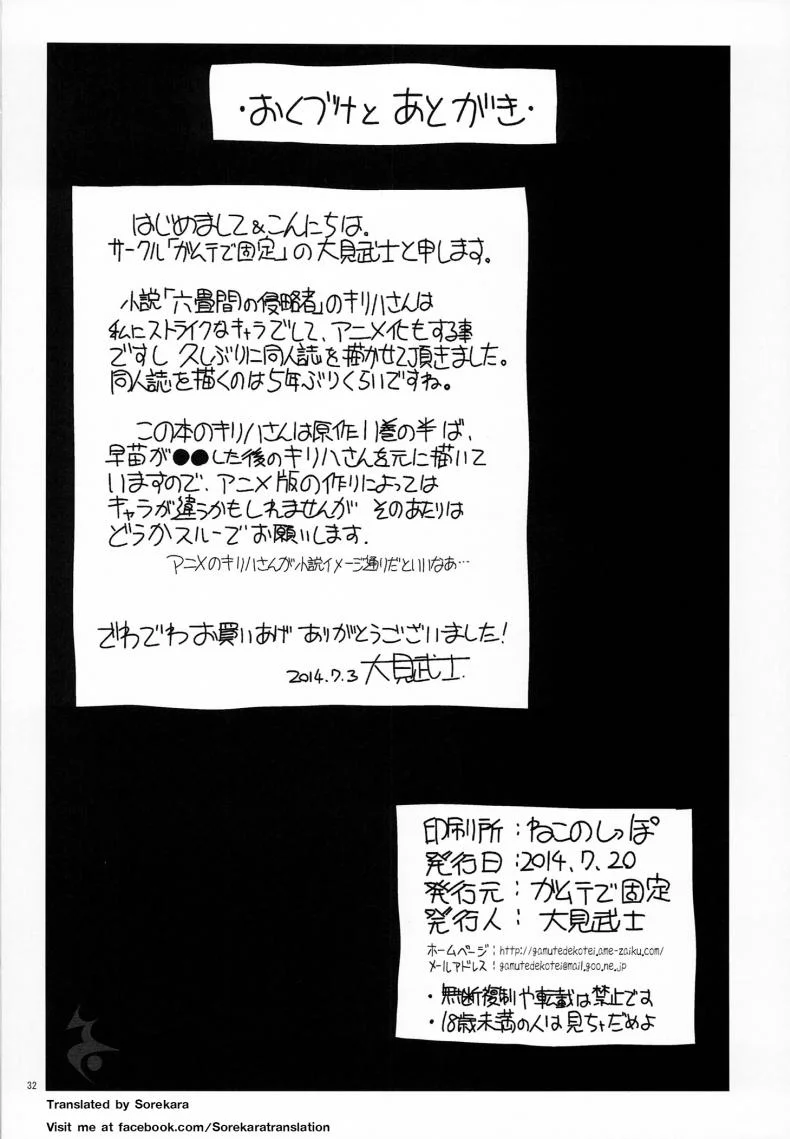 ・おくづけと あとがき・
はじめまして&こんにちは。
サークル「ガムテで固定」の大見武士と申します。
小説「六畳間の侵略者」のキリハさんは
私にストライクなキャラでして、アニメ化もする事
ですし 久しぶりに同人誌を描かせて頂きました。
同人誌を描くのは5年ぶりくらいですね。
この本のキリハさんは原作11巻の半ば、
早苗が●●した後のキリハさんを元に描いて
いますので、アニメ版の作りによっては
キャラが違うかもしれませんが そのあたりは
どうかスルーでお願いします.
アニメのキリハさんが小説イメージ通りだといいなあ…
でわでわお買いあげ ありがとうございました!
2014.7.3 大見武士.
印刷所:ねこのしっぽ
発行日:2014.7.20
発行元:ガムテで固定
発行人: 大見武士
ホームページ:http://gamutedekotei.ame-zaiku.com/
メールアドレス:gamutedekotei@mail.goo.ne.jp
・無断複制や転載は禁止です
・18歳未満の人は見ちゃだめよ
32
Translated by Sorekara
Visit me at facebook.com/Sorekaratranslation